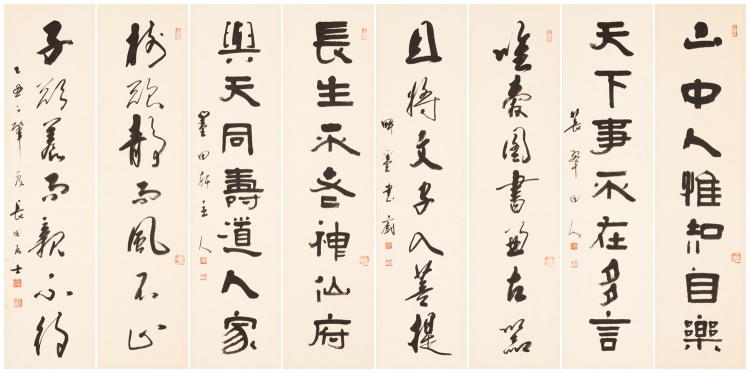 山中人惟知自樂
天下事不在多言
唯愛圖書兼古器
且將文字入菩提
長生不老神仙府
與天同壽道人家
墨田軒主人
樹欲靜而風不止
子欲養而親不待
長田居士